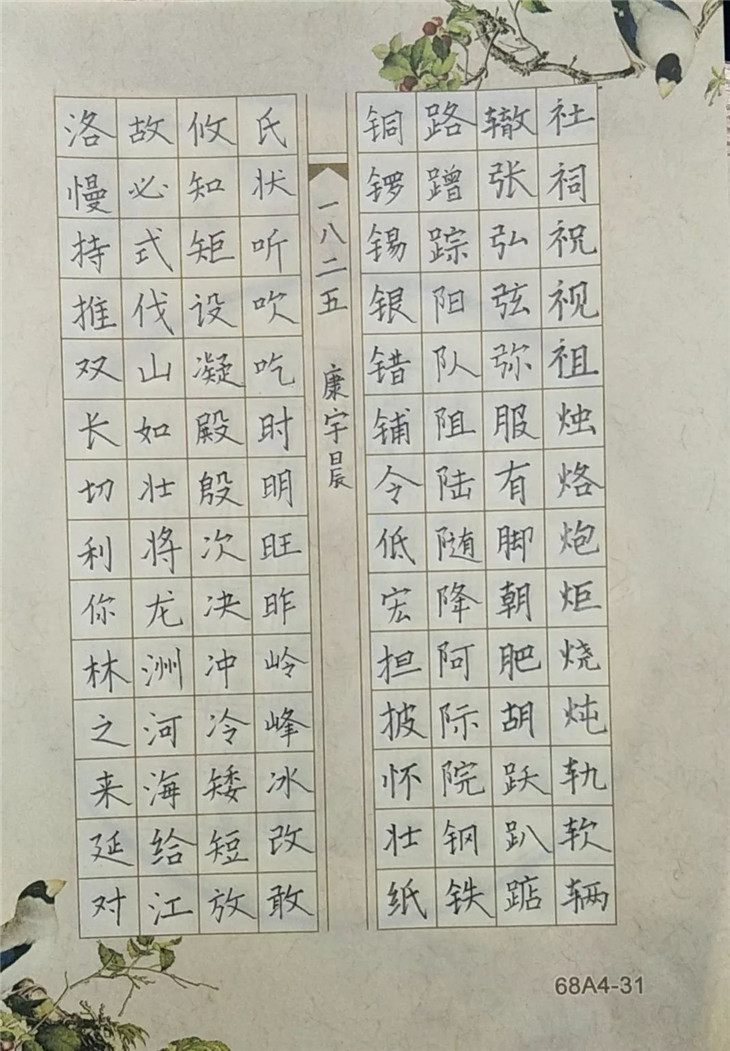 社祠祝视祖烛烙炮炬烧炖轨软辆
辙张弘弦弥服有脚朝肥胡跃趴踮
路蹭踪阳队阻陆随降阿际院钢铁
铜锣锡银错铺令低宏担披怀壮纸
一八二五 康宇晨
氏状听吹吃时明旺昨岭峰冰改敢
攸知矩设凝殿殷次决冲冷矮短放
故必式伐山如壮将龙洲河海给江
洛慢持推双长切利你林之来延对
68A4-31